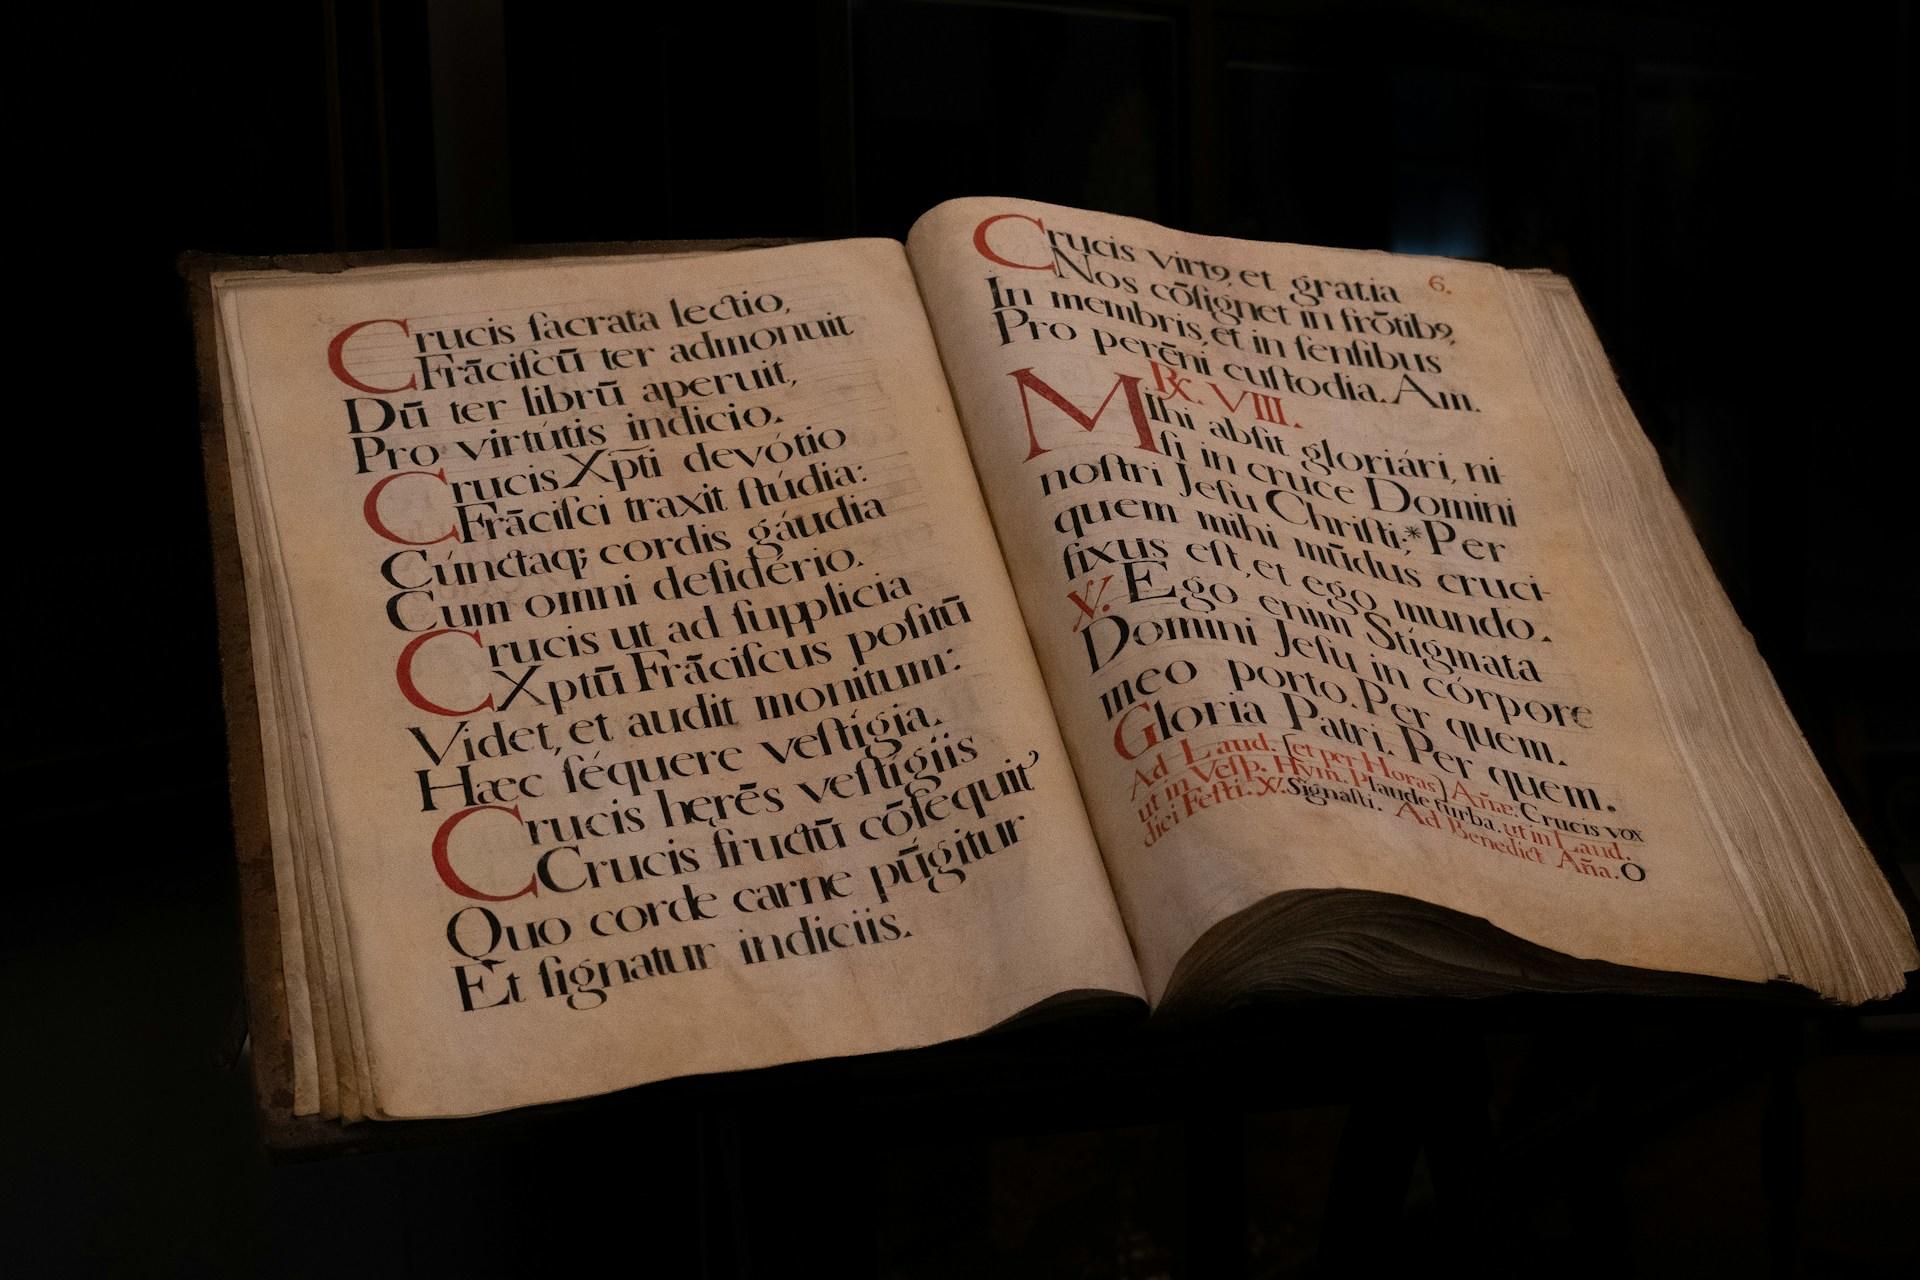 Crucis ſacrata lectio,
Frāciſcū ter admonuit
Dū ter librū aperuit,
Pro virtútis indicio.
Crucis Xpti devótio
Frāciſci traxit ſtúdia:
Cúnctaq; cordis gáudia
Cum omni deſidério.
Crucis ut ad ſupplicia
Xptū Frāciſcus poſitū
Videt, et audit monitum:
Hæc ſéquere veſtígia.
Crucis hęrēs veſtígiis
Crucis fructū cōſequit᾿
Quo corde carne pūgitur
Et ſignatur indiciis.
6.
Crucis virtꝰ, et gratia
Nos cōſignet in frōtibꝰ,
In membris, et in ſenſibus
Pro perēni cuſtodia. Am.
℟. VIII.
Mihi abſit gloriári, ni-
ſi in cruce Domini
noſtri Jeſu Chriſti;* Per
quem mihi mūdus cruci-
fixus eſt, et ego mundo.
℣. Ego enim Stígmata
Domini Jeſu in córpore
meo porto. Per quem.
Gloria Patri. Per quem.
Ad Laud. (et per Horas) Añæ: Crucis vox
ut in Veſp. Hym. Plaude turba. ut in Laud.
dici Feſti. ℣. Signaſti. Ad Benedict Aña. O